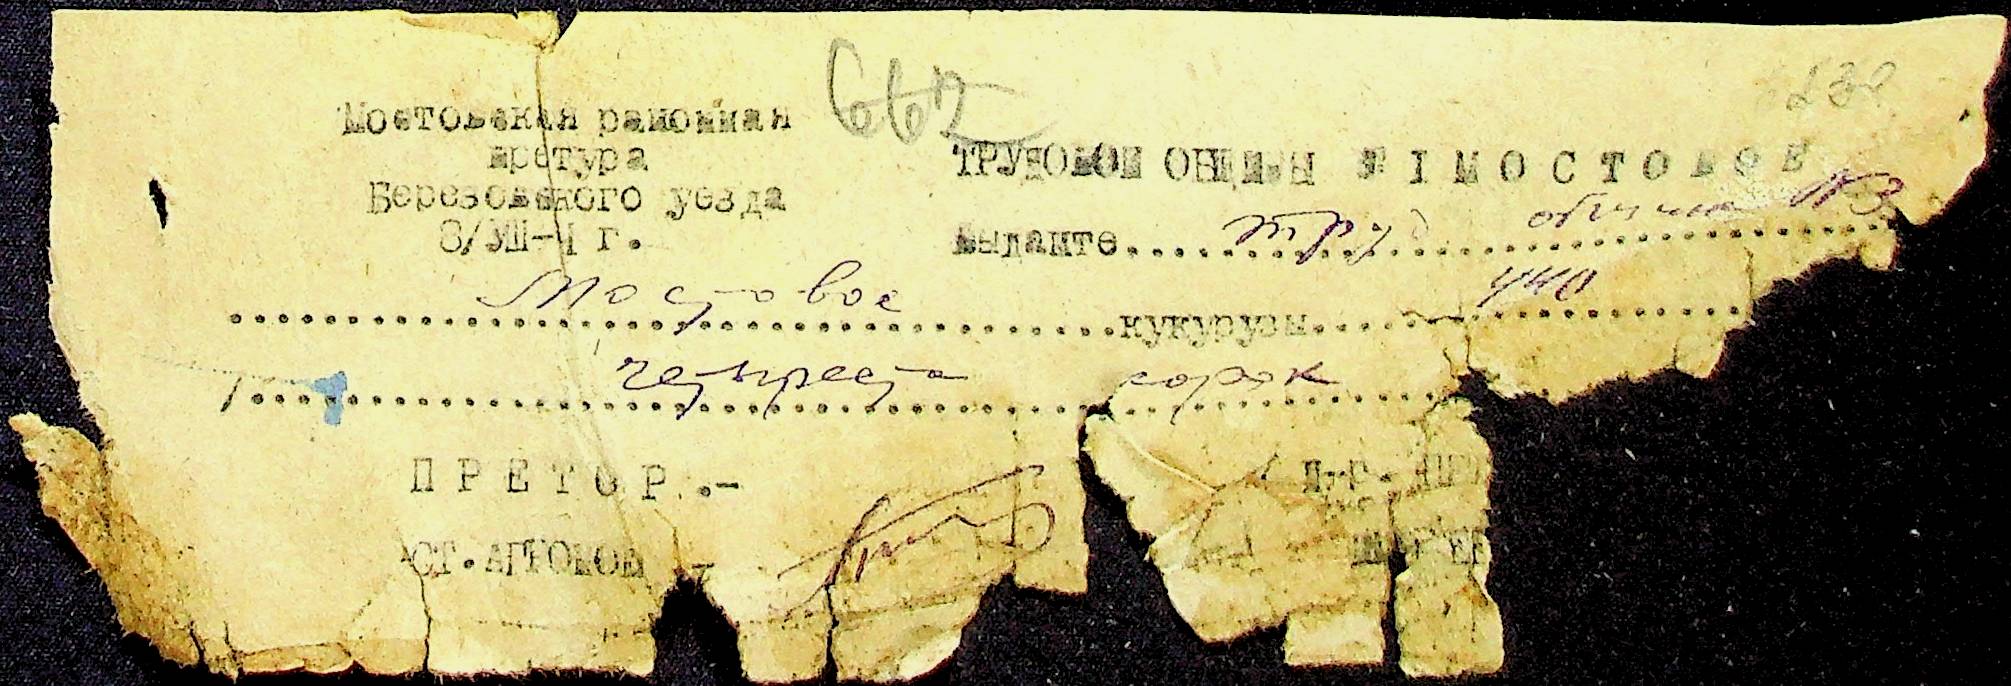 662
Мостовская районная
претура
Березовского уезда
8/УШ-4 г.
ТРУДОВОЙ ОБЩИНЫ №1 МОСТОВОЕ
Выдайте.....труд общине №3
Мостовое кукурузы 440
четыреста сорок
ПРЕТОР.-
СТ.АГРОНОМ